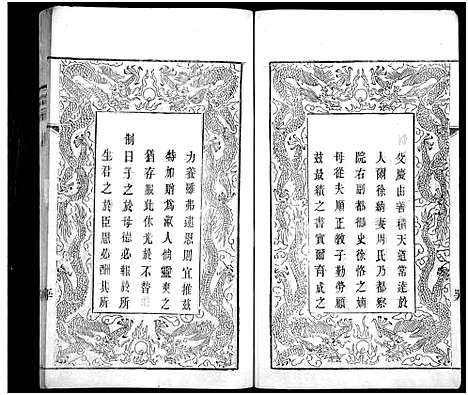 文慶由善積天道常達於
人爾徐綺妻周氏乃都察
院右副都御史徐恪之嫡
母從夫順正教子勤勞顧
茲最績之書實爾育成之
力養雖弗逮恩則宜推茲
特加贈爲淑人倘靈爽之
猶存服此休光於不替
制曰子之於母德必報於所
生君之於臣恩必酬其所